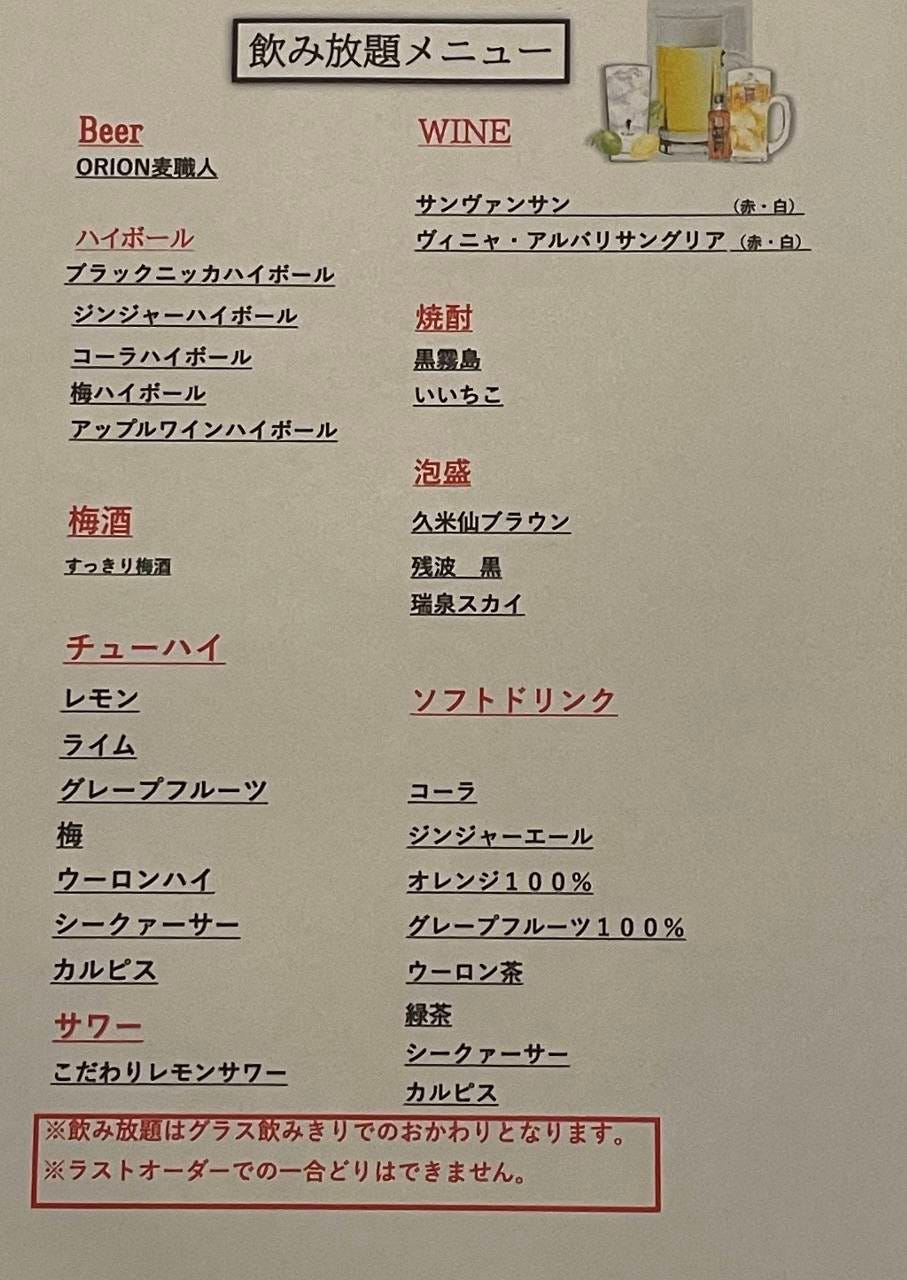 飲み放題メニュー
Beer
ORION麦職人
ハイボール
ブラックニッカハイボール
ジンジャーハイボール
コーラハイボール
梅ハイボール
アップルワインハイボール
梅酒
すっきり梅酒
チューハイ
レモン
ライム
グレープフルーツ
梅
ウーロンハイ
シークァーサー
カルピス
サワー
こだわりレモンサワー
WINE
サンヴァンサン （赤・白）
ヴィニャ・アルバリサングリア （赤・白）
焼酎
黒霧島
いいちこ
泡盛
久米仙ブラウン
残波　黒
瑞泉スカイ
ソフトドリンク
コーラ
ジンジャーエール
オレンジ１００％
グレープフルーツ１００％
ウーロン茶
緑茶
シークァーサー
カルピス
※飲み放題はグラス飲みきりでのおかわりとなります。
※ラストオーダーでの一合どりはできません。